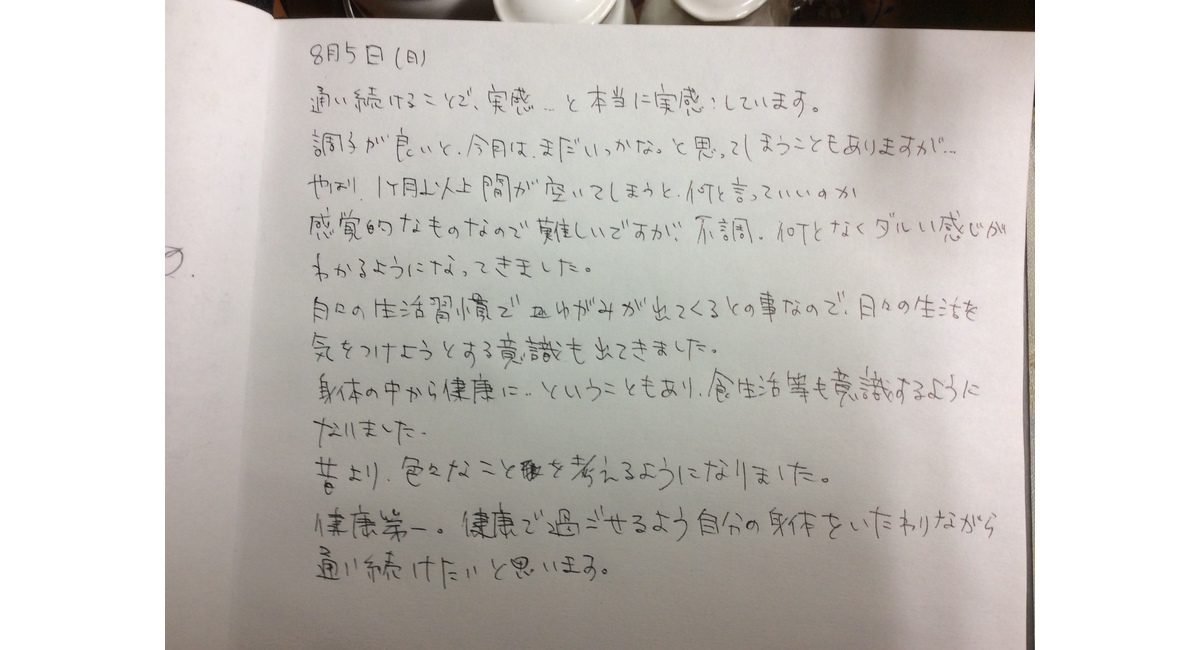 8月5日(日)
通い続けることで、実感…と本当に実感:しています。
調子が良いと、今月は、まだいっかな。と思ってしまうこともありますが…
やはり、1ヶ月以上間が空いてしまうと、何と言っていいのか
感覚的なものなので難しいですが、不調。何となくダルい感じが
わかるようになってきました。
日々の生活習慣でゆがみが出てくるとの事なので、日々の生活を
気をつけようとする意識も出てきました。
身体の中から健康に…ということもあり、食生活等も意識するように
なりました。
昔より、色々なことを考えるようになりました。
健康第一。健康で過ごせるよう自分の身体をいたわりながら
通い続けたいと思います。